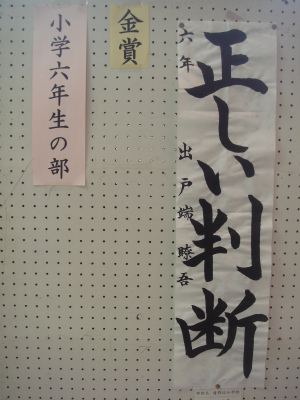 正しい判断
六年 出戸端瞭吾
金賞
小学六年生の部